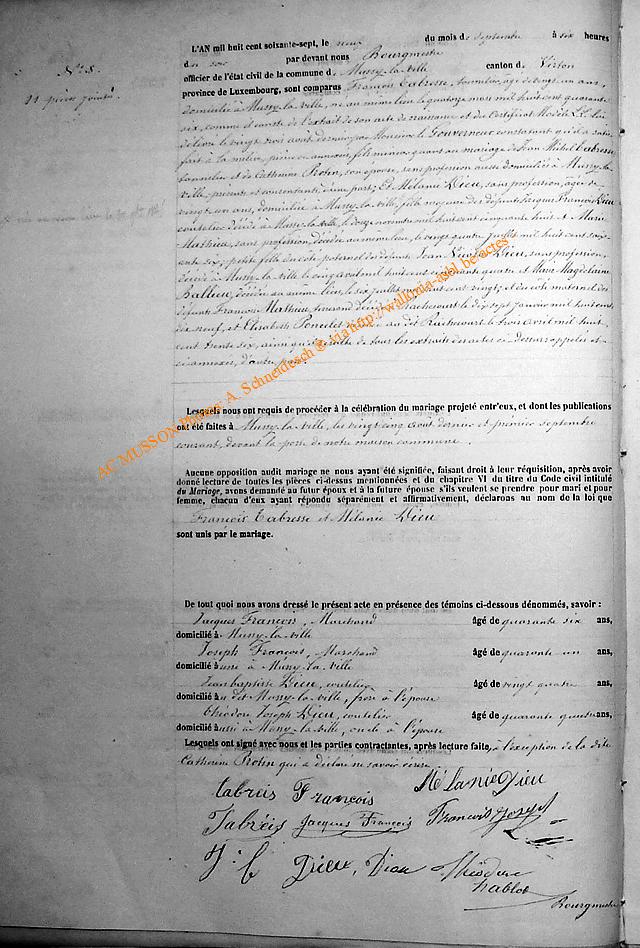 N.° 8.
11 pièces jointes.
L'AN mil huit cent soixante-sept, le neuf du mois de septembre à six heures
du soir par devant nous Bourgmestre
officier de l'état civil de la commune de Mussy-la-ville canton de Virton
province de Luxembourg, sont comparus François Tabresse, tonnelier, âgé de vingt un ans,
domicilié à Mussy-la-ville, né au même lieu le quatorze mars mil huit cent quarante
six, comme il conste de l'extrait de son acte de naissance et du Certificat Modèle Lt. lui
délivré le vingt trois août dernier par Monsieur le Gouverneur constatant qu'il a satis
fait à la milice, fils mineur quant au mariage de Jean Michel Tabresse
tonnelier et de Catherine Protin, son épouse, sans profession aussi domiciliés à Mussy-la-
ville, présents et consentants d'une part; Et Mélanie Dieu, sans profession, âgée de
vingt un ans, domiciliée à Mussy-la-ville, fille majeure des défunts Jacques François Dieu
coutelier décédé à Mussy-la-ville, le douze novembre mil huit cent cinquante huit et Marie
Mathieu, sans profession, décédée au même lieu, le vingt quatre juillet mil huit cent soix-
ante six; petite fille du côté paternel des défunts Jean Dieu, sans profession
décédé à Mussy-la-ville le cinq avril mil huit cent cinquante quatre et Marie Magdelaine
Balleux, décédée au même lieu, le six juillet cent vingt; et du côté maternel des
défunts François Mathieu, décédé à Rachecourt le dix sept janvier mil huit cent
dix neuf, et Elisabeth décédée au dit Rachecourt le trois avril mil huit
cent trente six, ainsi qu'il résulte de tous les extraits des actes ci-dessus rappelés et
ci-annexés, d'autre part.
Lesquels nous ont requis de procéder à la célébration du mariage projeté entr'eux, et dont les publications
ont été faites à Mussy-la-ville, les vingt cinq août dernier et premier septembre
courant, devant la porte de notre maison commune.
Aucune opposition audit mariage ne nous ayant été signifiée, faisant droit à leur réquisition, après avoir
donné lecture de toutes les pièces ci-dessus mentionnées et du chapitre VI du titre du Code civil intitulé
du Mariage, avons demandé au futur époux et à la future épouse s'ils veulent se prendre pour mari et pour
femme, chacun d'eux ayant répondu séparément et affirmativement, déclarons au nom de la loi que
François Tabresse et Mélanie Dieu
sont unis par le mariage.
De tout quoi nous avons dressé le présent acte en présence des témoins ci-dessous dénommés, savoir :
Jacques François, Marchand âgé de quarante six ans,
domicilié à Mussy-la-ville
Joseph François, Marchand âgé de quarante un ans,
domicilié aussi à Mussy-la-ville
Jean baptiste Dieu, coutelier âgé de vingt quatre ans,
domicilié au dit Mussy-la-ville, frère à l'épouse
Théodore Joseph Dieu, coutelier âgé de quarante quatre ans,
domicilié aussi à Mussy-la-ville, oncle à l'épouse
Lesquels ont signé avec nous et les parties contractantes, après lecture faite, à l'exception de la dite
Catherine Protin qui a déclaré ne savoir écrire.
Tabreis François Mélanie Dieu
Tabreis Jacques François François Joseph
J. B Dieu, Dieu Théodore
Nablot
Bourgmestre
AC MUSSON Photos: A. Schneidesch & via http://wallonia-asbl.be/actes